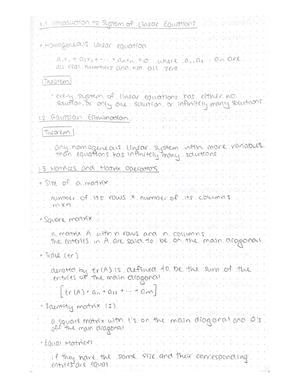 1.1 Introduction to System of Linear Equations
• Homogeneous linear equation
a₁x₁ + a₂x₂ + ··· + aₙxₙ = 0 where a₁, a₂ ... aₙ are
all real numbers and not all zero
Theorem
· every system of linear equations has either no
solution or only one solution or infinitely many solutions
1.2 Gaussian Elimination
Theorem
· any homogeneous linear system with more variables
than equations has infinitely many solutions
1.3 Matrices and Matrix Operators
• Size of a matrix
number of its rows × number of its columns
m×n
• Square matrix
a matrix A with n rows and n columns
the entries in A are said to be on the main diagonal
• Trace (tr)
denoted by tr(A) is defined to be the sum of the
entries of the main diagonal
[tr(A) = a₁₁ + a₂₂ + ··· + aₙₙ]
• Identity matrix (I)
a square matrix with 1's on the main diagonal and 0's
off the main diagonal
• Equal Matrices
if they have the same size and their corresponding
entries are equal